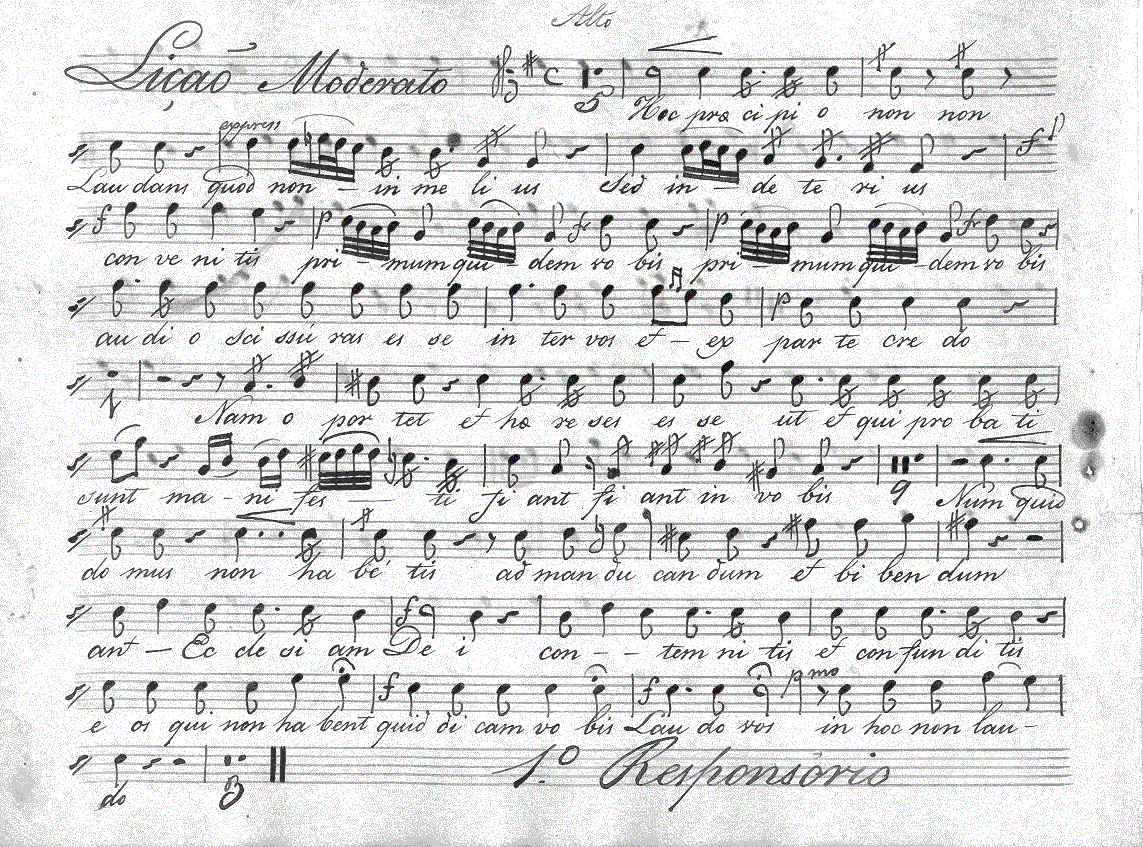 Alto
Liçaõ Moderato 5
Hoc præ ci pi o non non
express
Lau dans quod non - in me li us Sed in - de te ri us
f
f p p
con ve ni tis pri - mum qui - dem vo bis pri - mum qui - dem vo bis
p
au di o sci ssu ras es se in ter vos et - ex par te cre do
1
Nam o por tet et hæ re ses es se ut et qui pro ba ti
9
sunt ma - ni fes - ti fi ant fi ant in vo bis Num quid
do mus non ha be tis ad man du can dum et bi ben dum
f
ant - Ec cle si am De i con - - tem ni tis et con fun di tis
f f pmo
e os qui non ha bent quid di cam vo bis Lau do vos in hoc non lau -
3 1.o Responsório
do